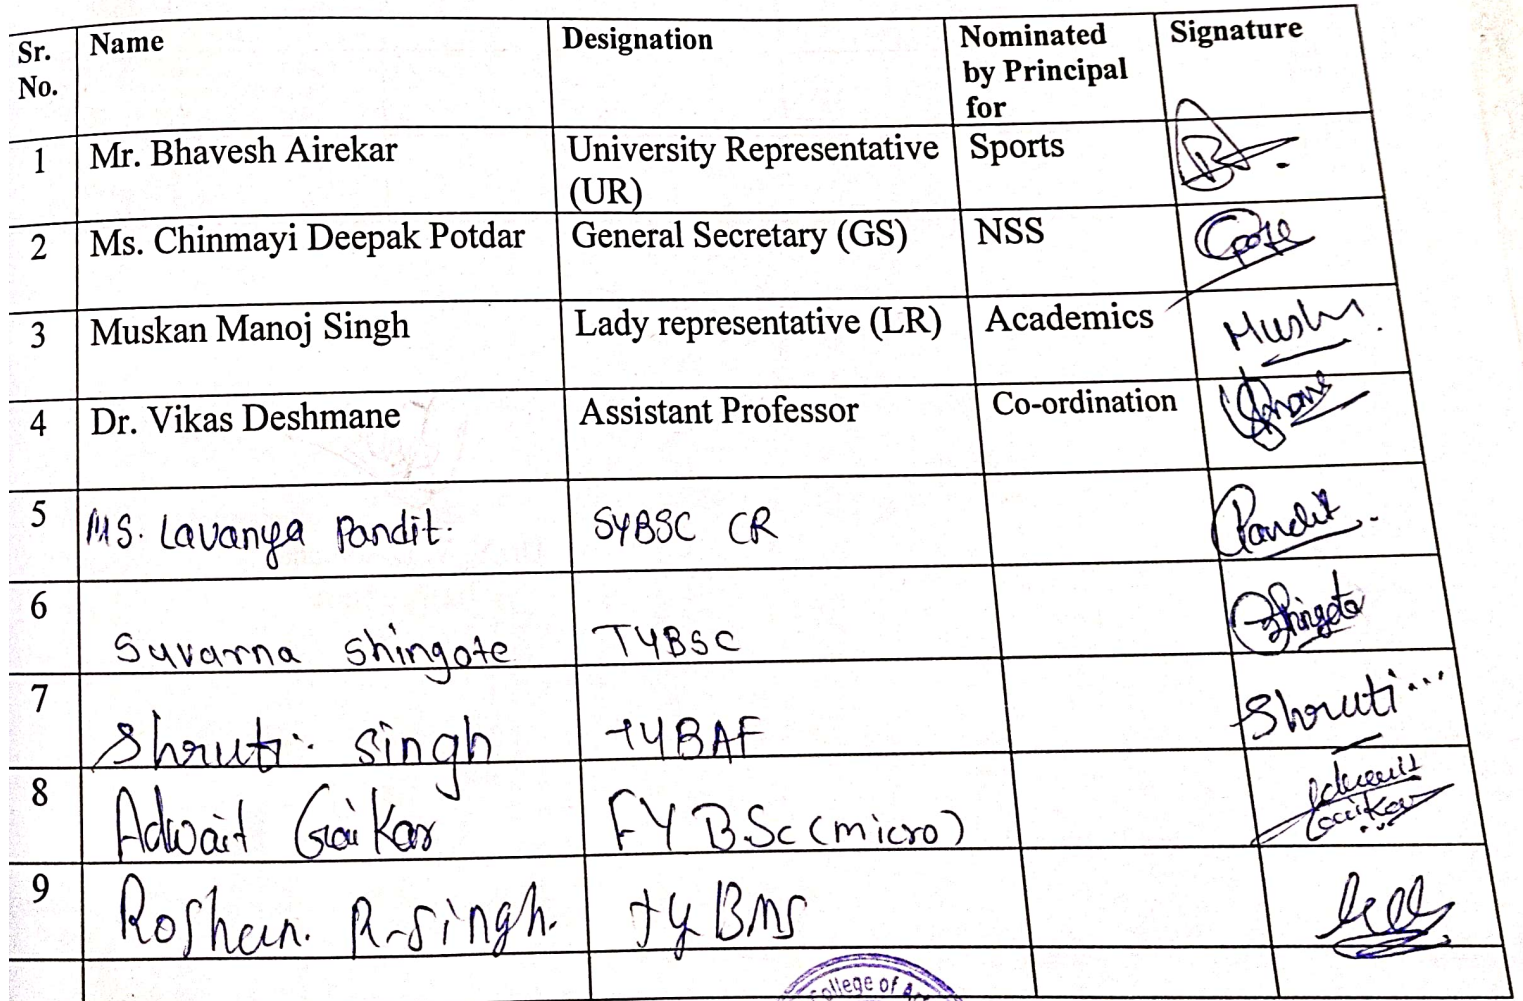 Sr. No. Name Designation Nominated by Principal for Signature
1 Mr. Bhavesh Airekar University Representative (UR) Sports
2 Ms. Chinmayi Deepak Potdar General Secretary (GS) NSS
3 Muskan Manoj Singh Lady representative (LR) Academics
4 Dr. Vikas Deshmane Assistant Professor Co-ordination
5 MS. Lavanya Pandit. SYBSC CR Pandit.
6 Suvarna Shingote TYBSC Shingote
7 Shruti. Singh TYBAF Shruti...
8 Adwait Gaikar FY BSc (micro) Adwait Gaikar
9 Roshan. R. Singh. TYBMS
College of